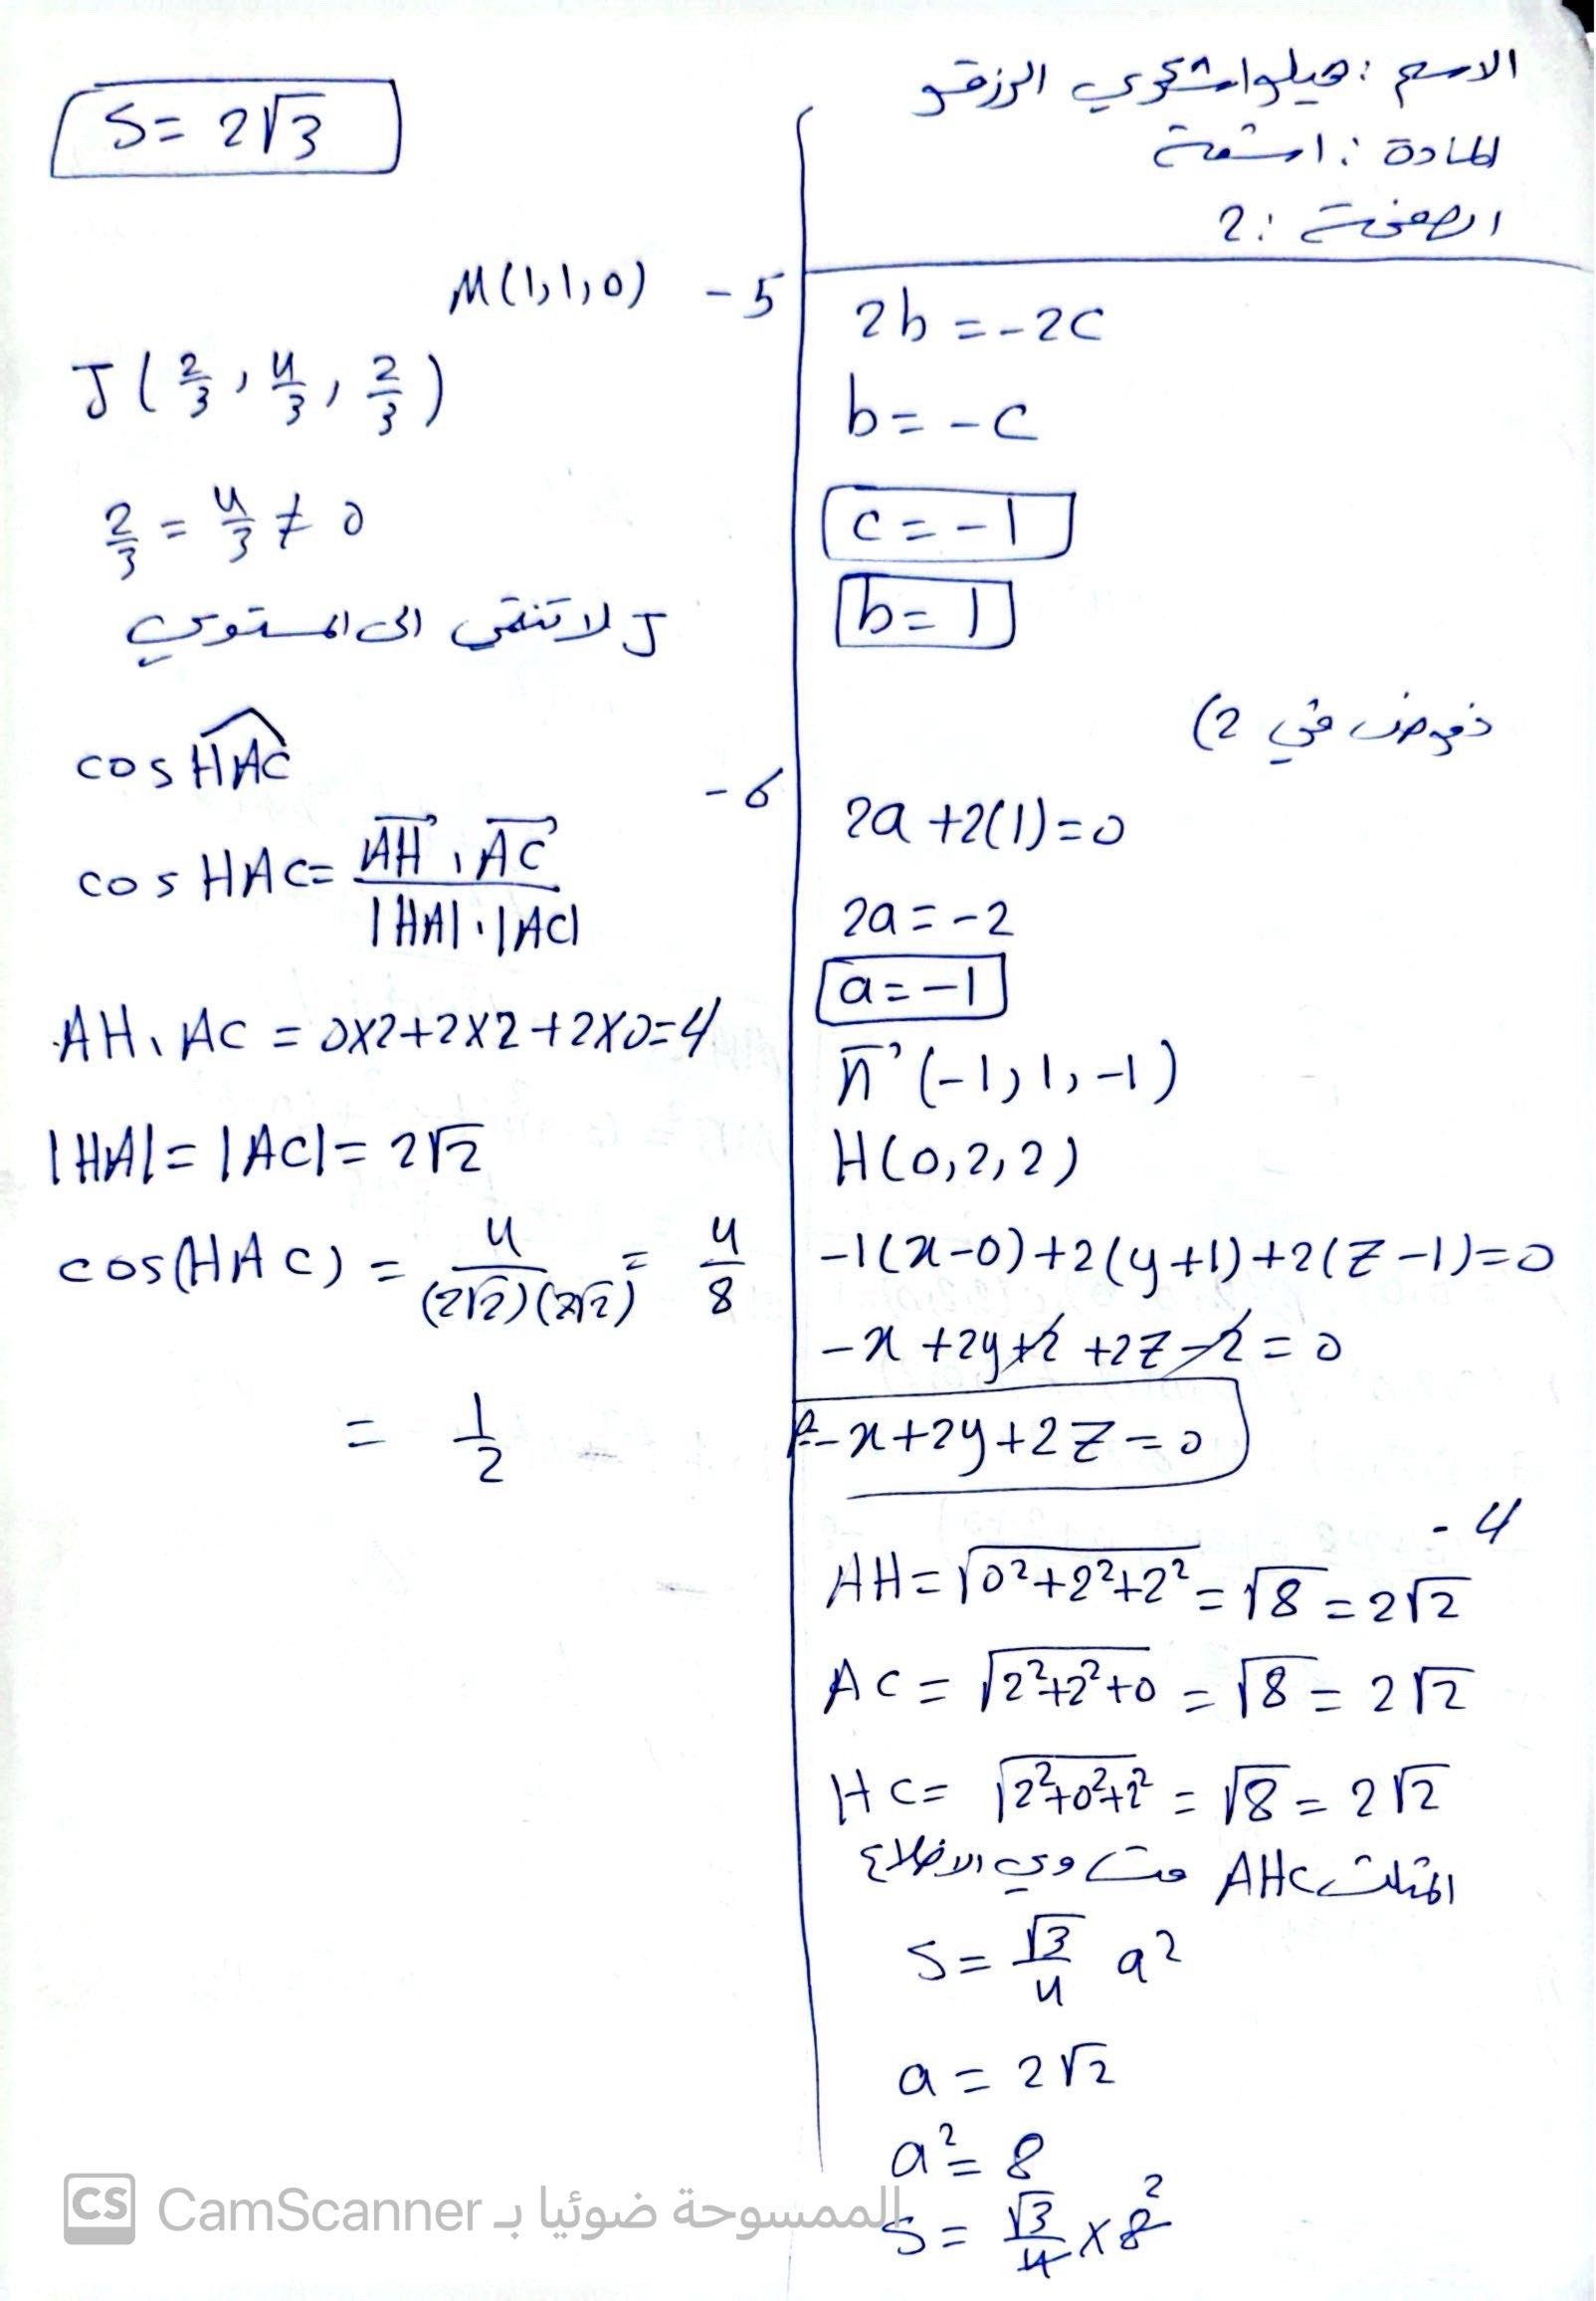 الاسم : هيلوا شكري الرزقو
المادة : اشعة
الصفحة : 2
2b = -2c
b = -c
c = -1
b = 1
نعوض في 2)
2a + 2(1) = 0
2a = -2
a = -1
n⃗ (-1, 1, -1)
H(0, 2, 2)
-1(x-0)+2(y+1)+2(z-1)=0
-x +2y+2 +2z-2 = 0
P: -x+2y+2z=0
- 4
AH = √0²+2²+2² = √8 = 2√2
AC = √2²+2²+0 = √8 = 2√2
HC = √2²+0²+2² = √8 = 2√2
المثلث AHC متساوي الاضلاع
S = √3/4 a²
a = 2√2
a² = 8
S = √3/4 × 8 2
S = 2√3
M(1, 1, 0) - 5
J(2/3, 4/3, 2/3)
2/3 = 4/3 ≠ 0
J لا تنتمي الى المستوي
cos HAC
- 6
cos HAC = AH⃗ . AC⃗ / |HA|.|AC|
AH . AC = 0×2+2×2+2×0=4
|HA| = |AC| = 2√2
cos(HAC) = 4/(2√2)(2√2) = 4/8
= 1/2
CS CamScanner الممسوحة ضوئيا بـ